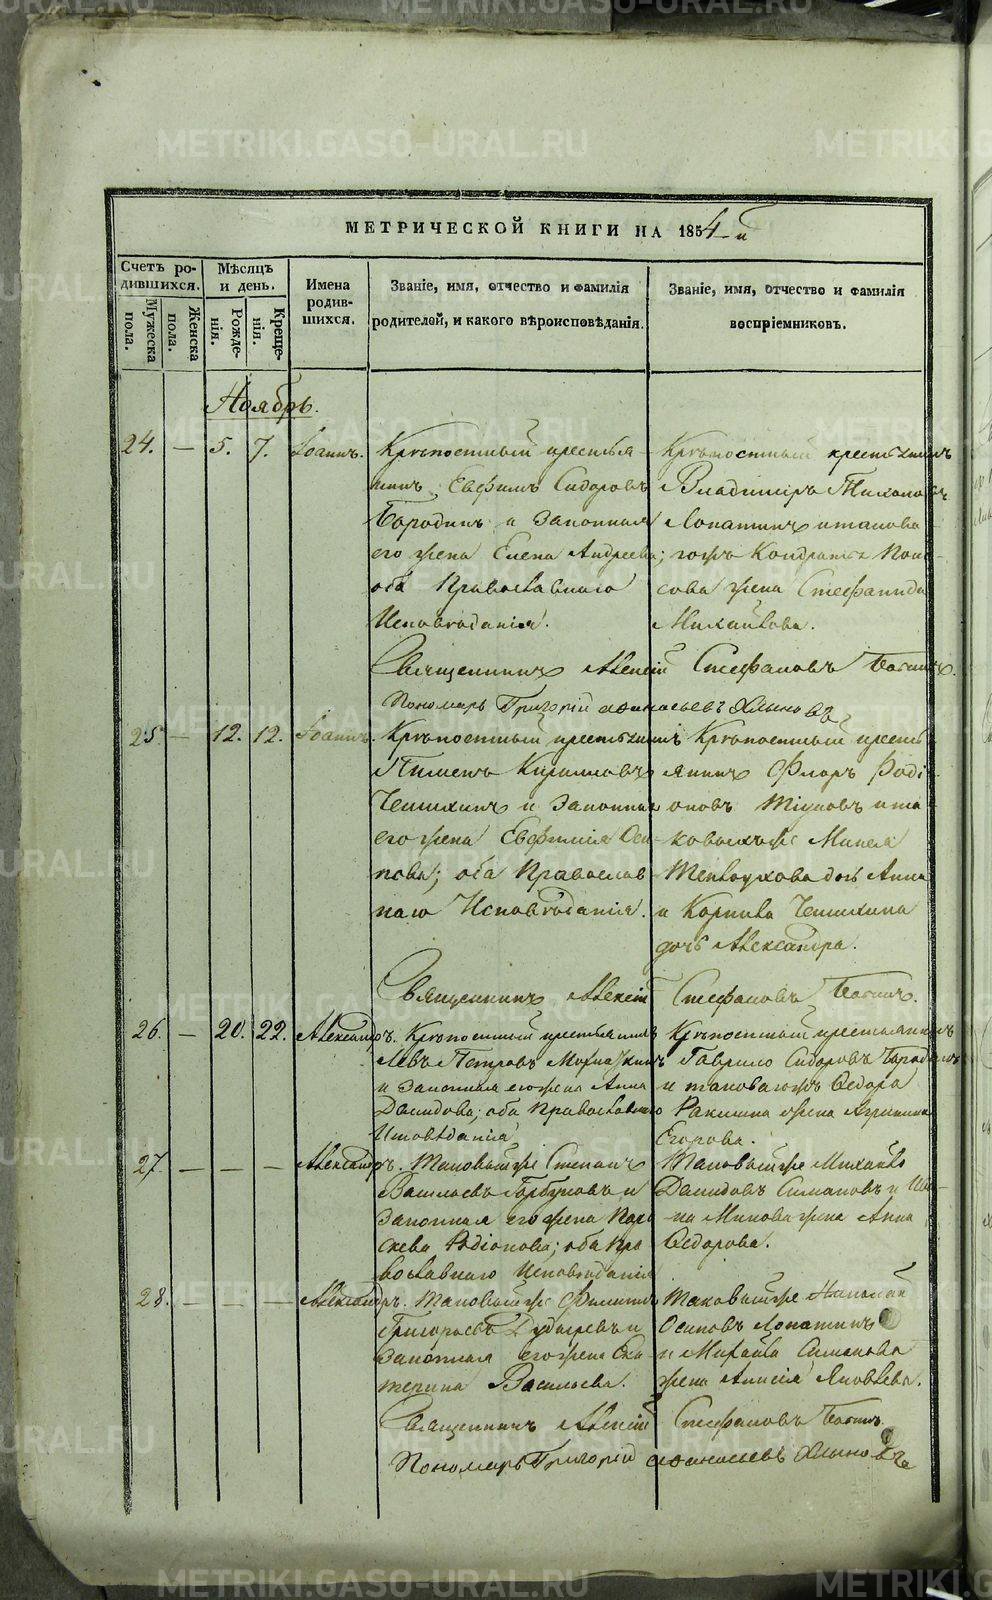 МЕТРИЧЕСКОЙ КНИГИ НА 1854-й
Счетъ ро-
дившихся.
Мѣсяцъ
и день.
Имена
родив-
шихся.
Званіе, имя, отчество и фамилія
родителей, и какого вѣроисповѣданія.
Званіе, имя, отчество и фамилія
воспріемниковъ.
Мужеска
пола.
Женска
пола.
Рожде-
нія.
Креще-
нія.
Ноябрь.
24. — 5. 7. Іоаннъ.
Крѣпостный крестья-
нинъ Евфимъ Сидоровъ
Бородинъ и Законная
его жена Елена Андреева;
оба Православнаго
Исповѣданія.
Крѣпостный крестьянинъ
Владиміръ
Лопатинъ и такова
гожъ Кондратья
жена Стефанида
Михайлова.
Священникъ Алексій Стефановъ
Пономарь Григорій Афанасьевъ Хлыновъ
25. — 12. 12. Іоаннъ.
Крѣпостный крестьянинъ
Пименъ Кирилловъ
и Законная
его жена Евфимія Оси-
пова; оба Православ-
наго Исповѣданія.
Крѣпостный кресть-
янинъ Флоръ Роді-
оновъ Тіуновъ и та-
ковыхъ же Минея
дочь Анна
и Карпила
дочь Александра.
Священникъ Алексій Стефановъ
26. — 20. 22. Александръ.
Крѣпостный крестьянинъ
Левъ Петровъ
и Законная его жена Анна
Давидова; оба Православнаго
Исповѣданія
Крѣпостный крестьянинъ
Гаврило Сидоровъ Бородинъ
и таковагожъ Ѳедора
Ракшина жена Агрипина
Егорова.
27. — — — Александръ.
Таковый же Степанъ
Васильевъ Горбуновъ и
Законная его жена Пара-
скева Родіонова; оба Пра-
вославнаго Исповѣданія
Таковый же Михайло
Давидовъ Симановъ и
Минова жена Анна
Ѳедорова.
28. — — — Александръ.
Таковый же Филиппъ
Григорьевъ и
Законная его жена Ека-
терина Васильева.
Таковый же
Осиповъ Лопатинъ
и Михайла Симанова
жена Анисія Яковлева.
Священникъ Алексій Стефановъ
Пономарь Григорій Афанасьевъ Хлыновъ
METRIKI.GASO-URAL.RU